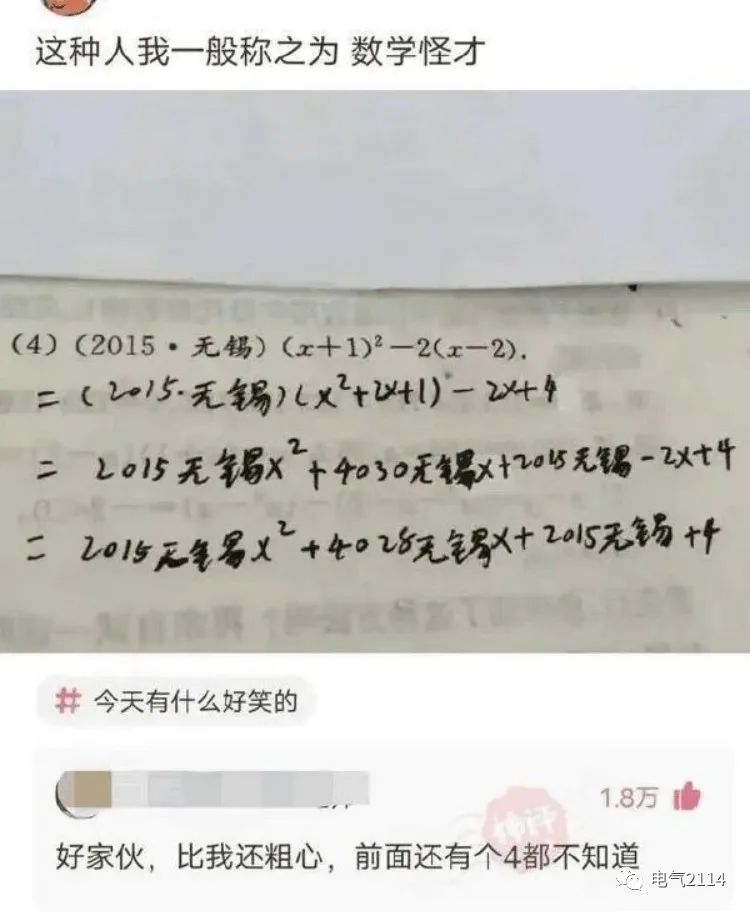 这种人我一般称之为 数学怪才
(4)(2015·无锡)(x+1)²-2(x-2).
=(2015·无锡)(x²+2x+1)-2x+4
= 2015无锡x²+4030无锡x+2015无锡-2x+4
= 2015无锡x²+4028无锡x+2015无锡+4
# 今天有什么好笑的
1.8万
神评
好家伙，比我还粗心，前面还有个4都不知道
电气2114